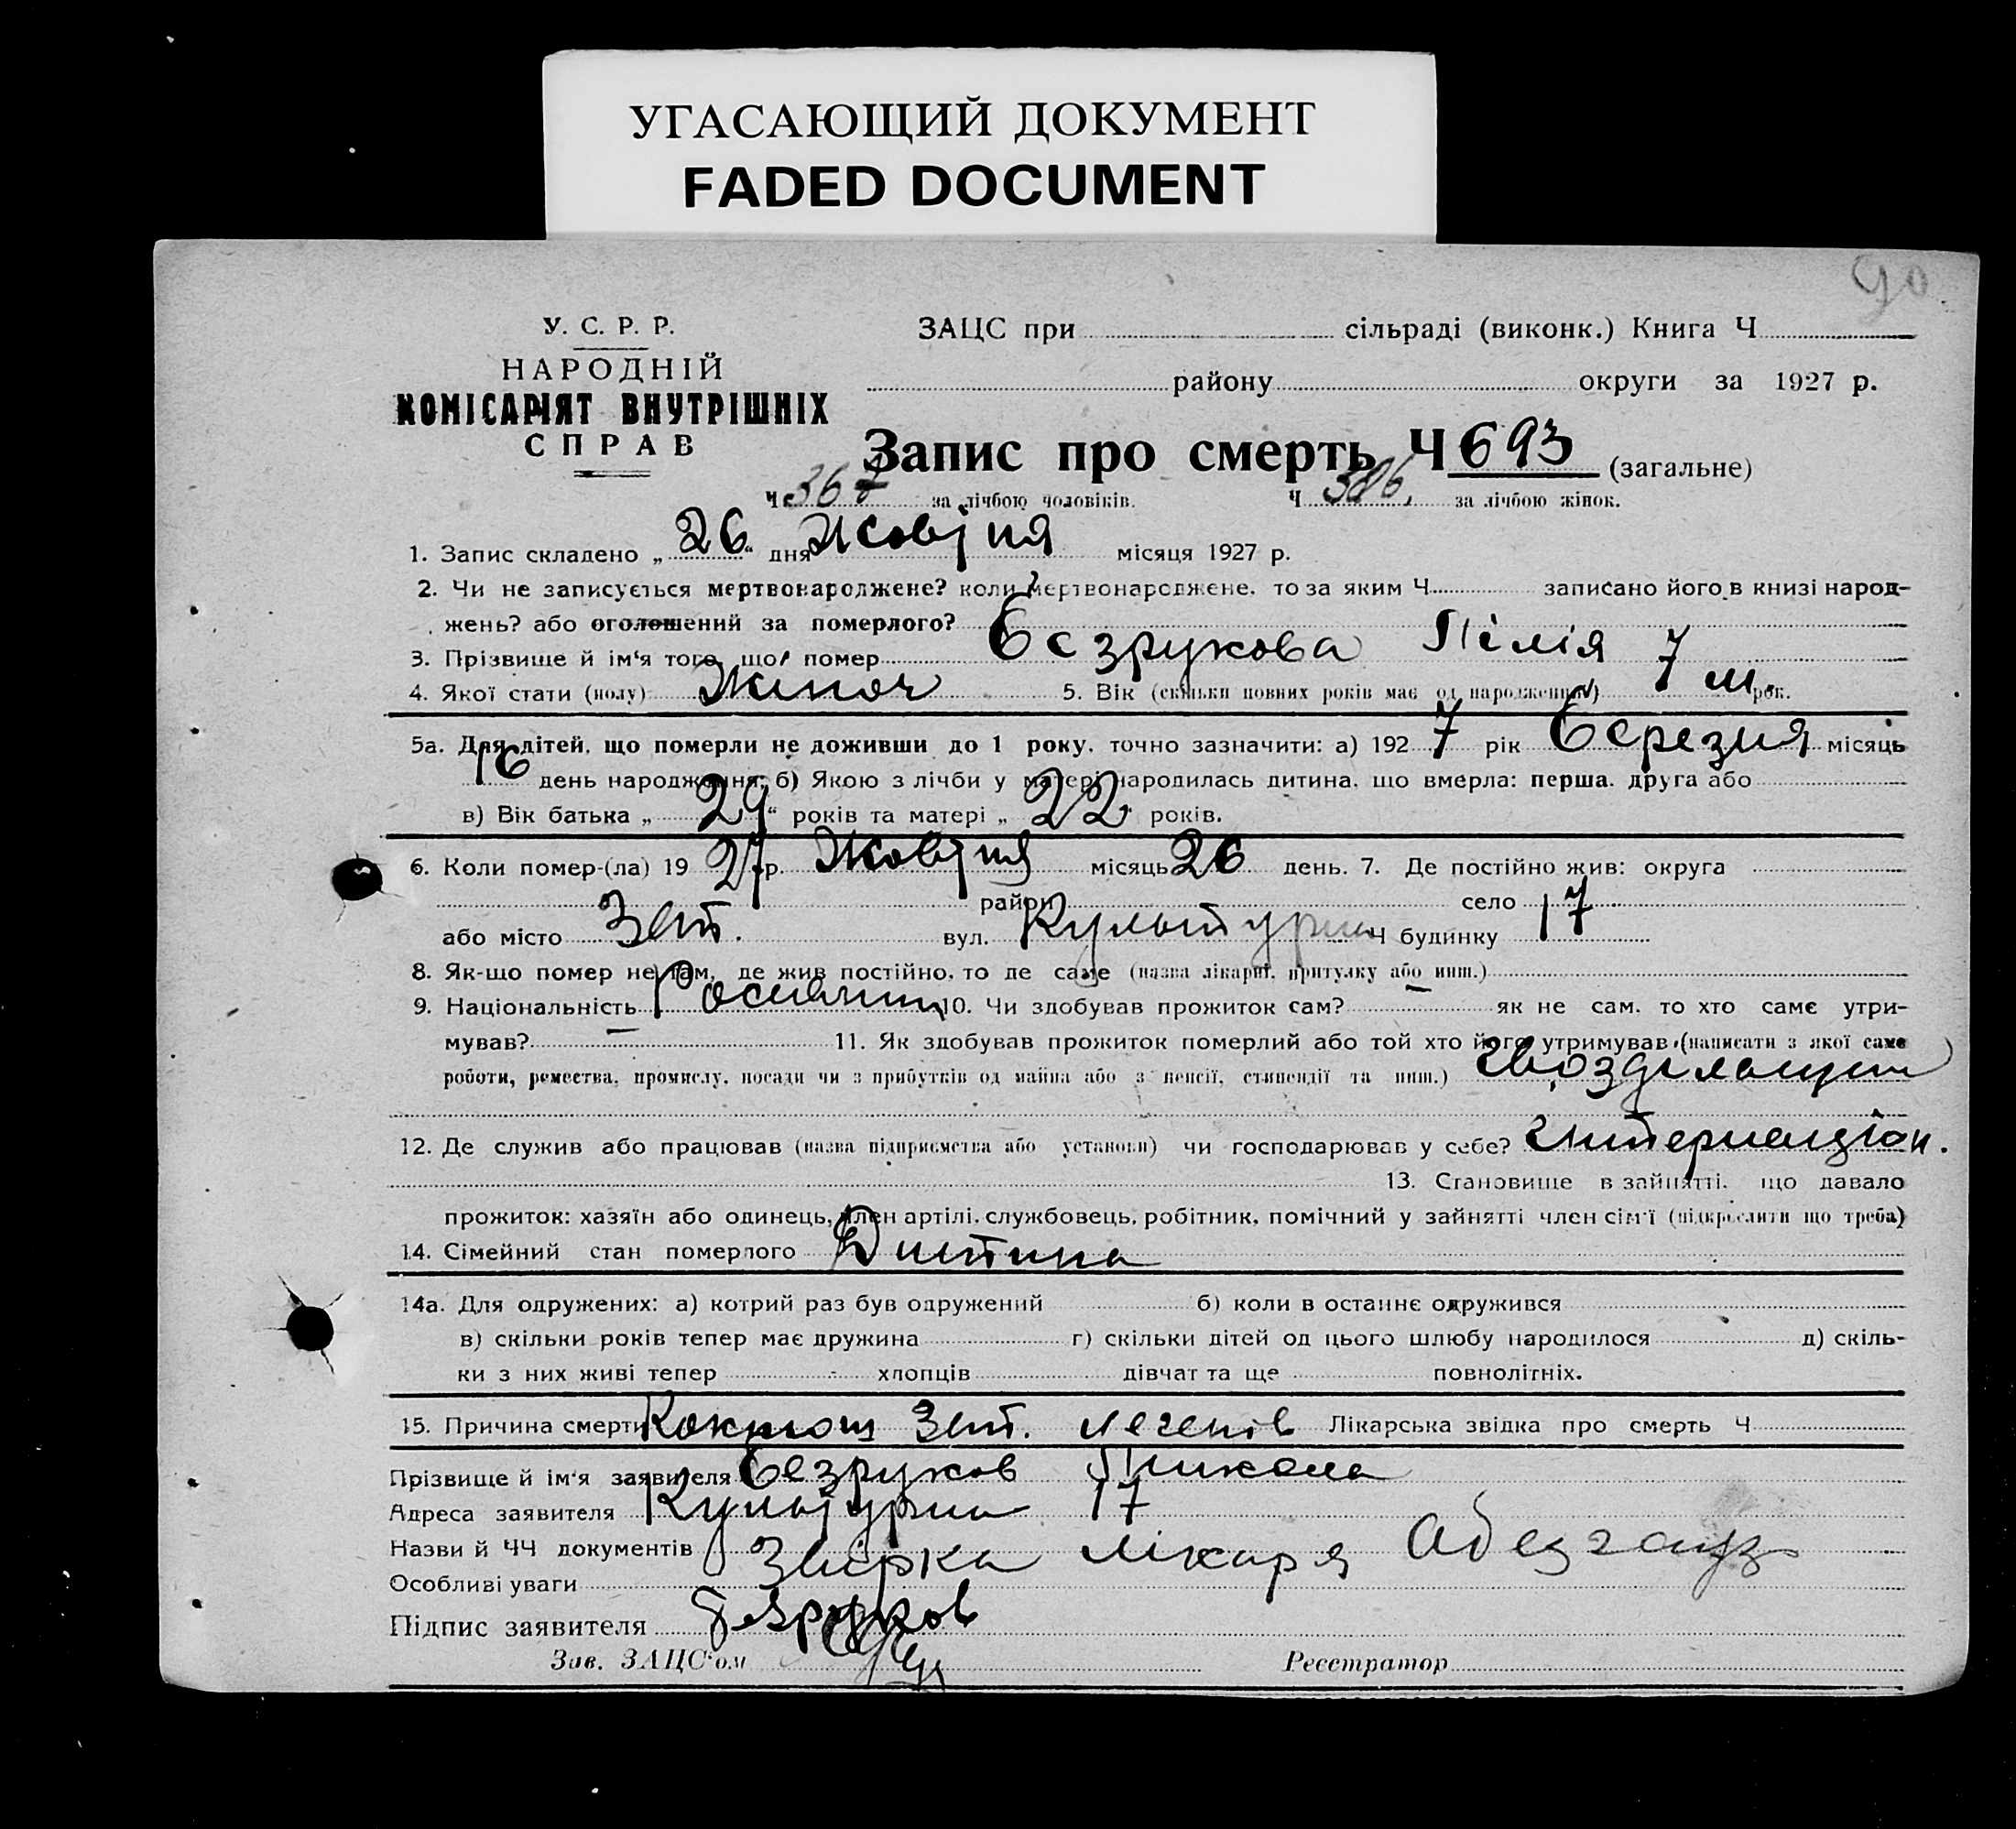 УГАСАЮЩИЙ ДОКУМЕНТ
FADED DOCUMENT
90
У. С. Р. Р.
НАРОДНІЙ
КОМІСАРІЯТ ВНУТРІШНІХ
СПРАВ
ЗАЦС при сільраді (виконк.) Книга Ч
району округи за 1927 р.
Запис про смерть Ч 693 (загальне)
Ч 367 за лічбою чоловіків. Ч 386 за лічбою жінок.
1. Запис складено „ 26 " дня Жовтня місяця 1927 р.
2. Чи не записується мертвонароджене? коли мертвонароджене, то за яким Ч записано його в книзі народ-
жень? або оголошений за померлого?
3. Прізвище й ім'я того, що помер Безрукова Лілія
4. Якої стати (полу) Жіноч 5. Вік (скільки повних років має од народження) 7 м. рок.
5а. Для дітей, що померли не доживши до 1 року, точно зазначити: а) 192 7 рік Березня місяць
16 день народження; б) Якою з лічби у матері народилась дитина, що вмерла: перша, друга або
в) Вік батька „ 29 " років та матері „ 22 " років.
6. Коли помер-(ла) 19 27 р. Жовтня місяць 26 день. 7. Де постійно жив: округа
район село
або місто Зет. вул. Культурна Ч будинку 17
8. Як-що помер не там, де жив постійно, то де саме (назва лікарні, притулку або инш.)
9. Національність 10. Чи здобував прожиток сам? як не сам, то хто саме утри-
мував? 11. Як здобував прожиток померлий або той хто його утримував (написати з якої саме
роботи, ремества, промислу, посади чи з прибутків од майна або з пенсії, стипендії та инш.)
12. Де служив або працював (назва підприємства або установи) чи господарював у себе? Интернаціон.
13. Становище в зайнятті, що давало
прожиток: хазяїн або одинець, член артілі, службовець, робітник, помічний у зайнятті член сім'ї (підкреслити що треба)
14. Сімейний стан померлого Дитина
14а. Для одружених: а) котрий раз був одружений б) коли в останнє одружився
в) скільки років тепер має дружина г) скільки дітей од цього шлюбу народилося д) скіль-
ки з них живі тепер хлопців дівчат та ще повнолітніх.
15. Причина смерти Коклюш Зап. легенів Лікарська звідка про смерть Ч
Прізвище й ім'я заявителя Безруков Микола
Адреса заявителя Культурна 17
Назви й ЧЧ документів Звірка лікаря Абезгауз
Особливі уваги
Підпис заявителя Безруков
Зав. ЗАЦС'ом Реєстратор